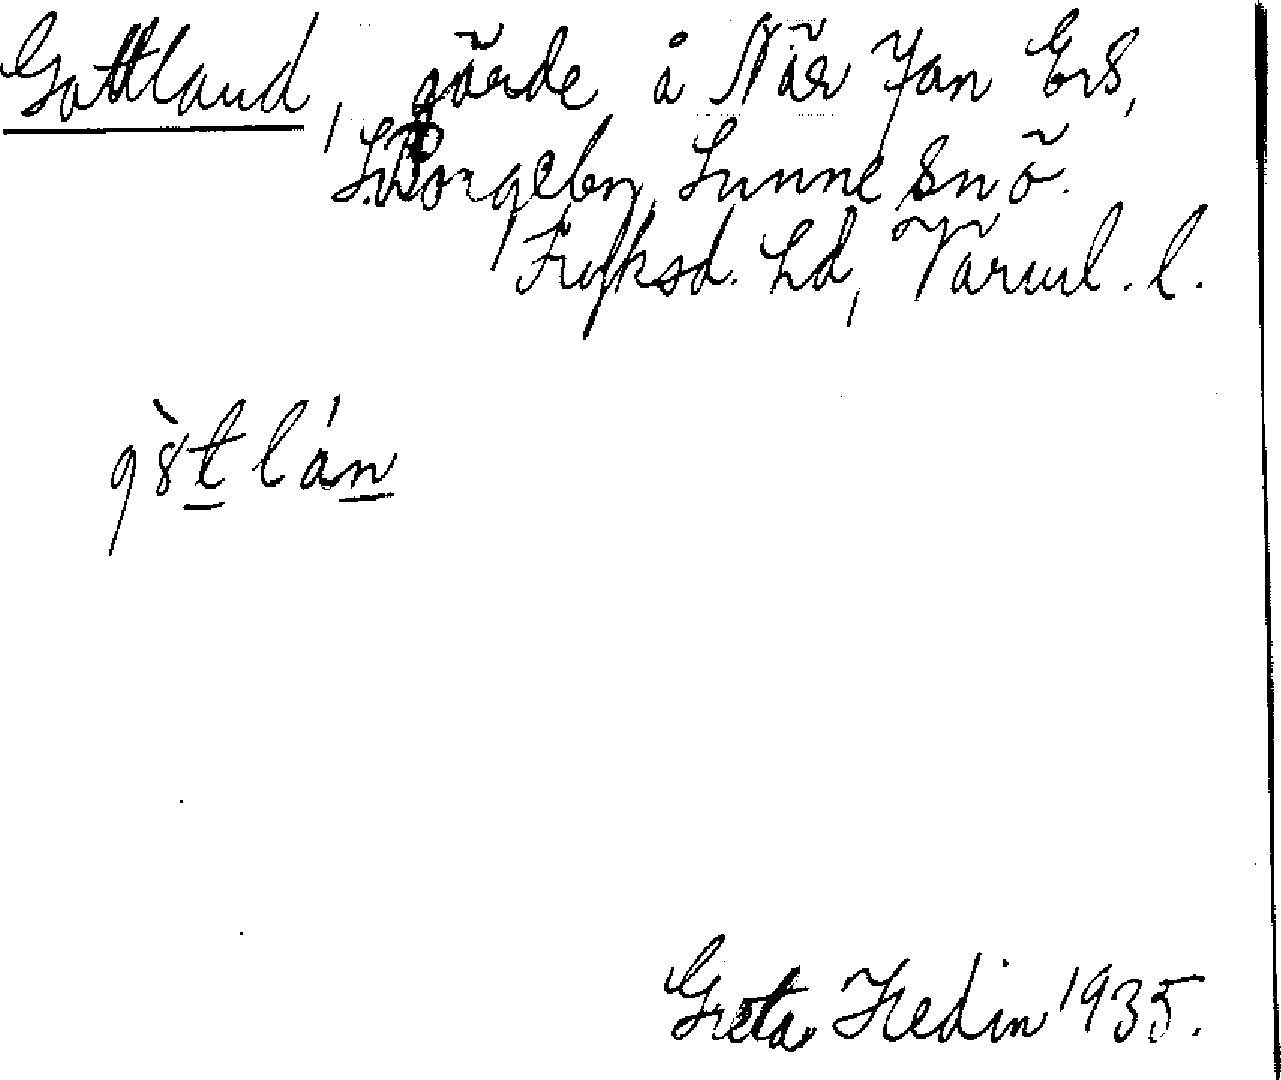 Gottland, gärde å När Jan Ers,
S. Borgeby, Sunne snö.
Fryksd. hd, Värml. l.
Greta Hedin 1935.